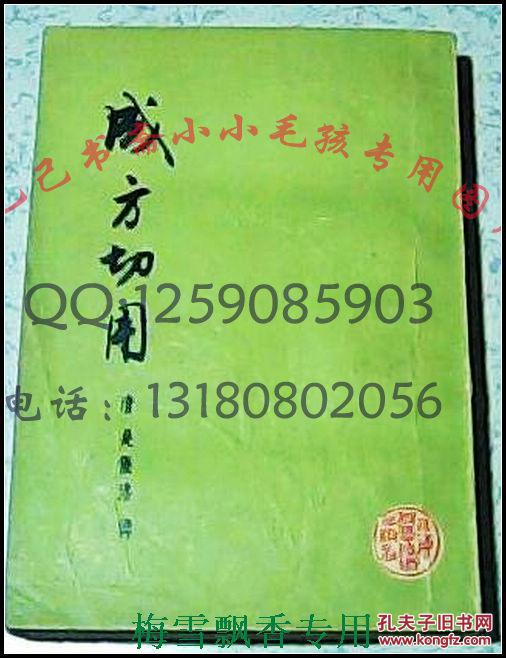 成方切用
清 吴仪洛 辑
己书斋小小毛孩专用图
QQ:1259085903
电话：13180802056
梅雪飘香专用
孔夫子旧书网
www.kongfz.com